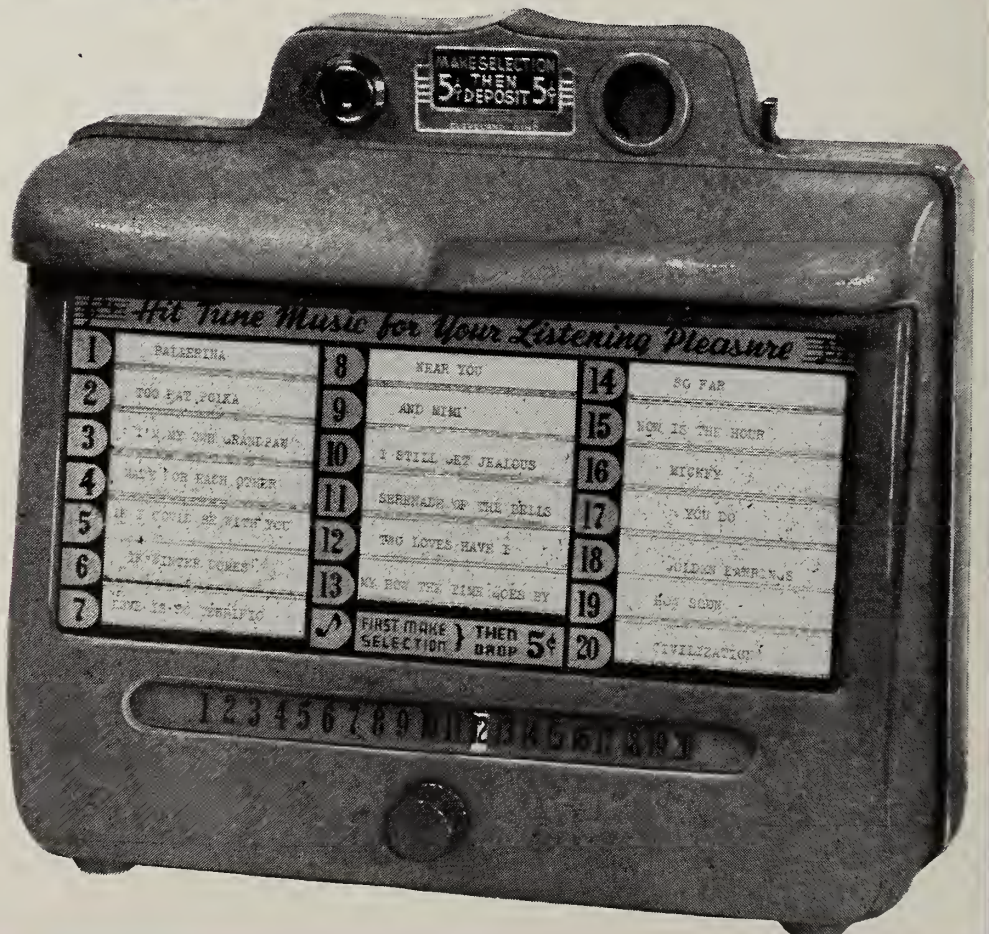 MAKE SELECTION
5¢ THEN 5¢
DEPOSIT
Hit Tune Music for Your Listening Pleasure
1 BALLERINA
2 TOO FAT POLKA
3 I'M MY OWN GRANDPAW
4 EACH OTHER
5 IF I COULD BE WITH YOU
6 WINTER COMES
7 LOVE IS SO TERRIFIC
8 NEAR YOU
9 AND MIMI
10 I STILL GET JEALOUS
11 SERENADE OF THE BELLS
12 TWO LOVES HAVE I
13 MY HOW THE TIME GOES BY
FIRST MAKE SELECTION } THEN DROP 5¢
14 SO FAR
15 NOW IS THE HOUR
16 MICKEY
17 YOU DO
18 GOLDEN EARRINGS
19 HOW SOON
20 CIVILIZATION
1 2 3 4 5 6 7 8 9 10 11 12 13 14 15 16 17 18 19 20